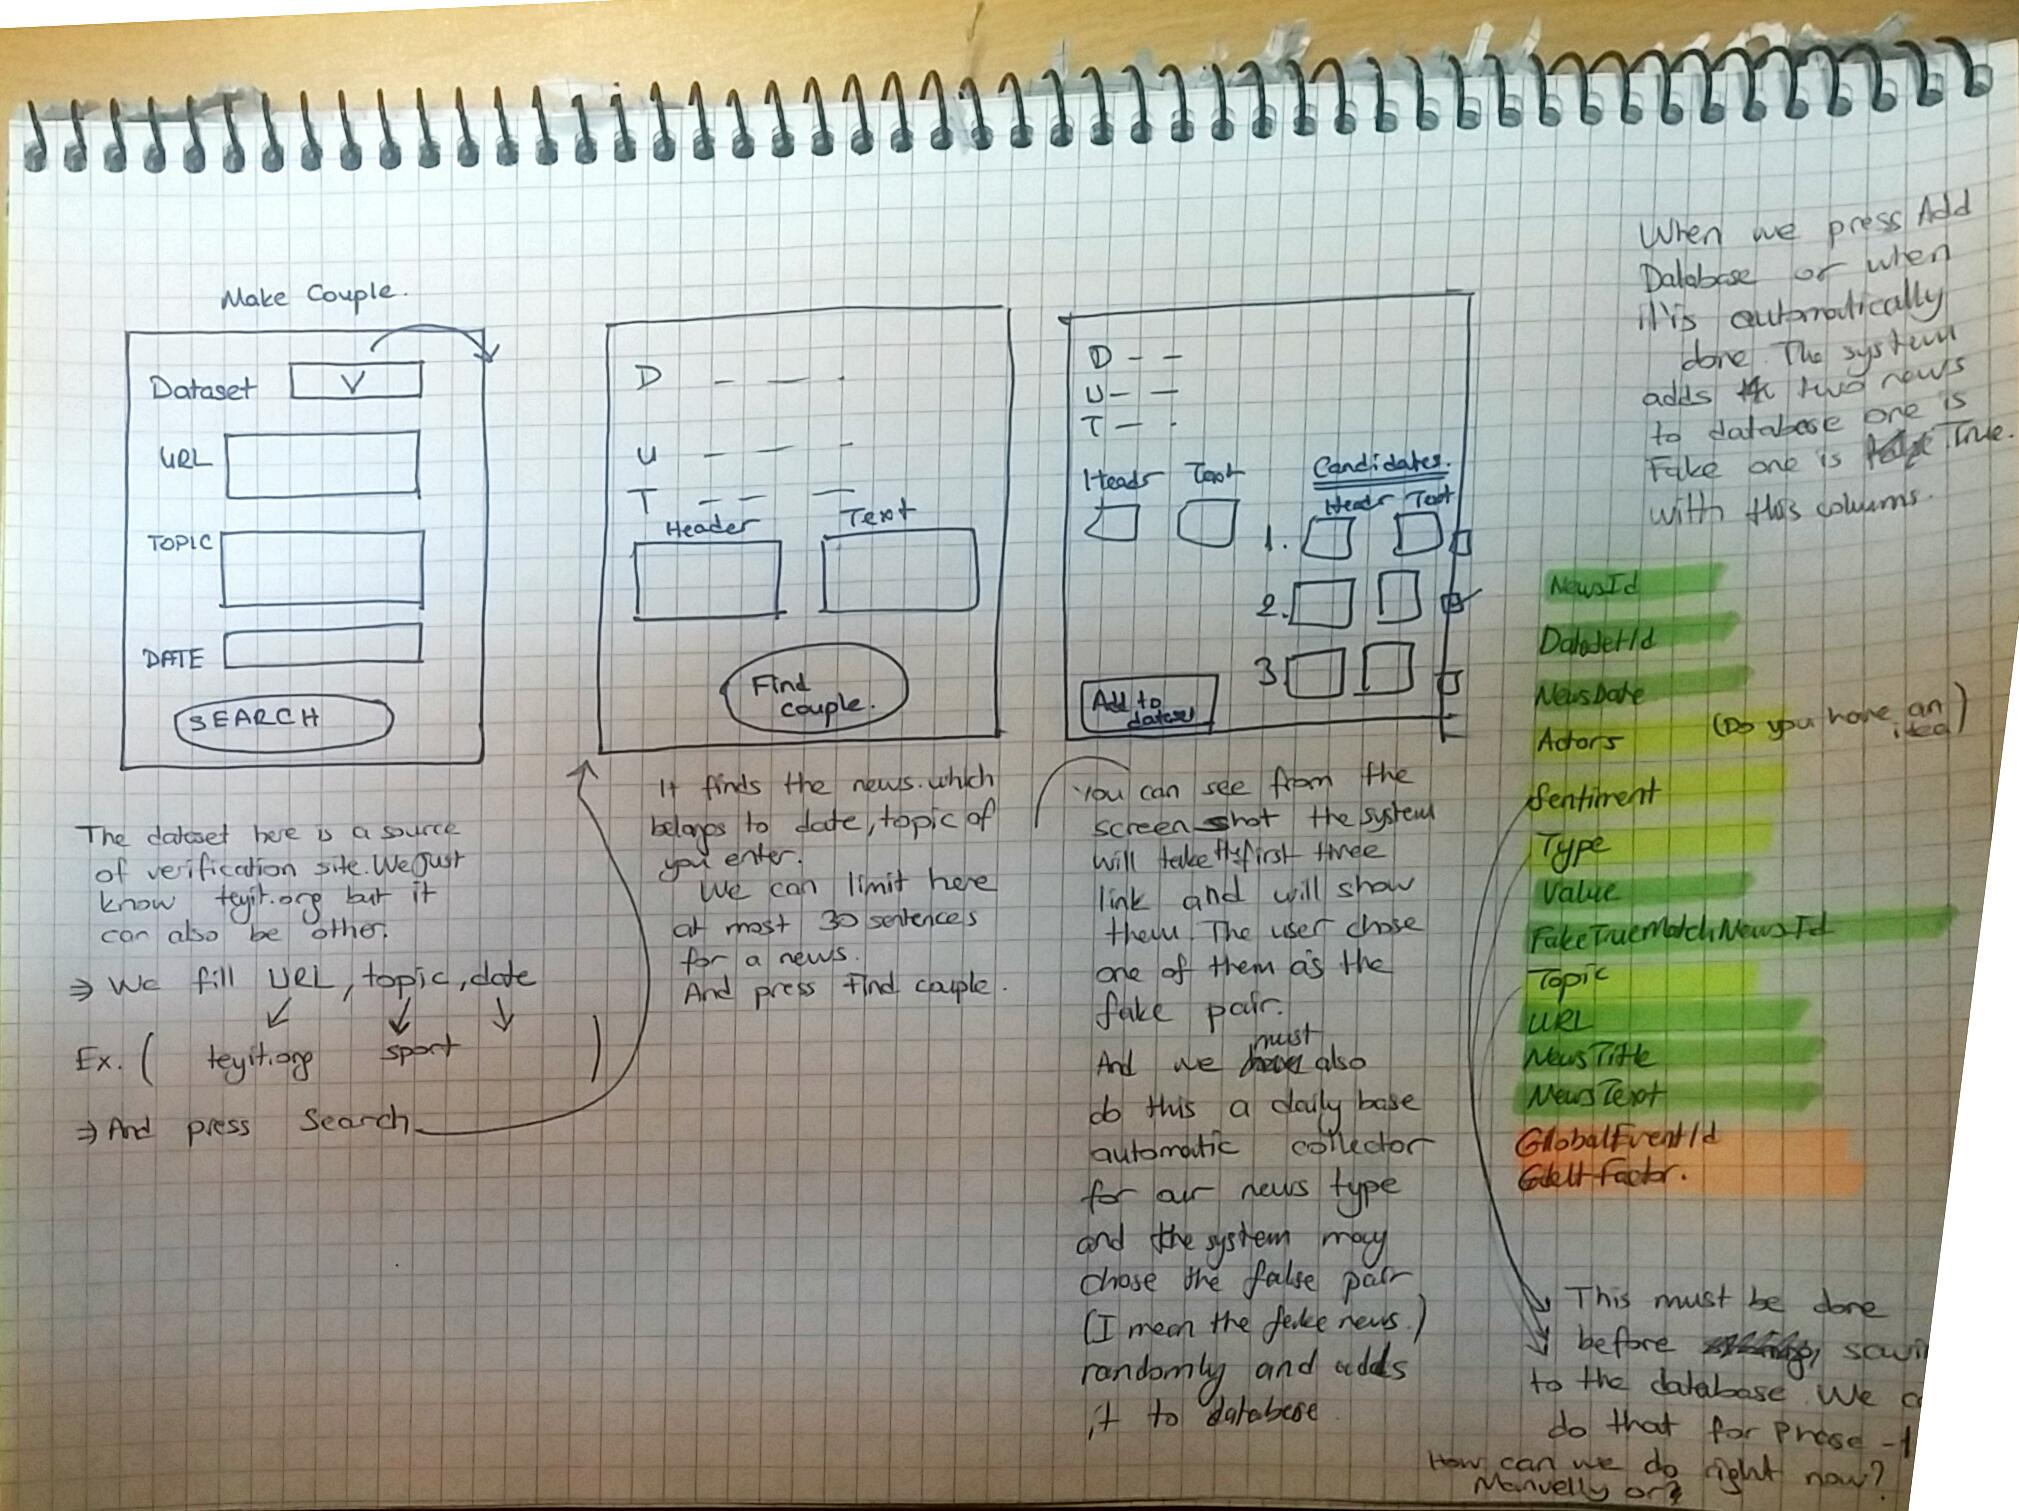 Make Couple.
Dataset V
URL
TOPIC
DATE
SEARCH
The dataset here is a source
of verification site. We just
know teyit.org but it
can also be other.
⇒ We fill URL, topic, date
Ex. ( teyit.org sport )
⇒ And press Search
D
U
T
Header Text
Find
couple.
It finds the news which
belongs to date, topic of
you enter.
We can limit here
at most 30 sentences
for a news.
And press find couple.
D
U
T
Candidates.
Text
Text
1.
2.
3.
Add to
dataset
You can see from the
screen shot the system
will take the first three
link and will show
them. The user chose
one of them as the
fake pair.
And we must also
do this a daily base
automatic collector
for our news type
and the system may
chose the false pair
(I mean the fake news.)
randomly and adds
it to database
When we press Add
Database or when
it'is automatically
done. The system
adds two news
to database one is
Fake one is True.
with this colums.
NewsId
DatasetId
NewsDate
Actors (Do you have an
idea)
Sentiment
Type
Value
FakeTrueMatchNewsId
Topic
URL
NewsTitle
NewsText
GlobalEventId
Gdelt factor.
This must be done
before
to the database. We
do that for Phase -1
How can we do right now?
Manuelly or?